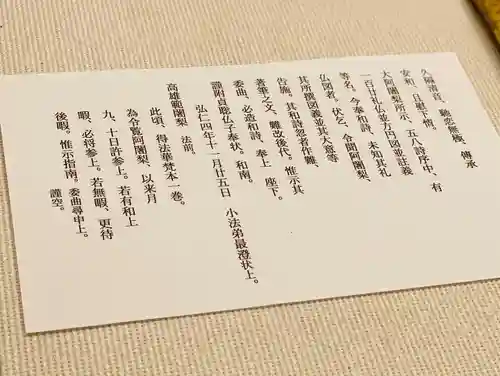 久隔清音、馳恋無極、傳承
安和、且慰下情、
大阿闍梨所示、五八詩序中、有
一百廿礼仏並方円図並註義
等名。今奉和詩、未知其礼
仏図者、伏乞、令聞阿闍梨、
其所撰図義並其大意等
告施。其和詩忽者作難、
著筆之文、難改後代。惟示其
委曲、必造和詩、奉上　座下。
謹附貞聡仏子奉状。和南。
弘仁四年十一月廿五日　小法弟最澄状上。
高雄範闍梨　法前。
此頃、得法華梵本一巻。
為令覧阿闍梨、以来月
九、十日許参上。若有和上
暇、必将参上。若無暇、更待
後暇。惟示指南。委曲尋申上。
謹空。